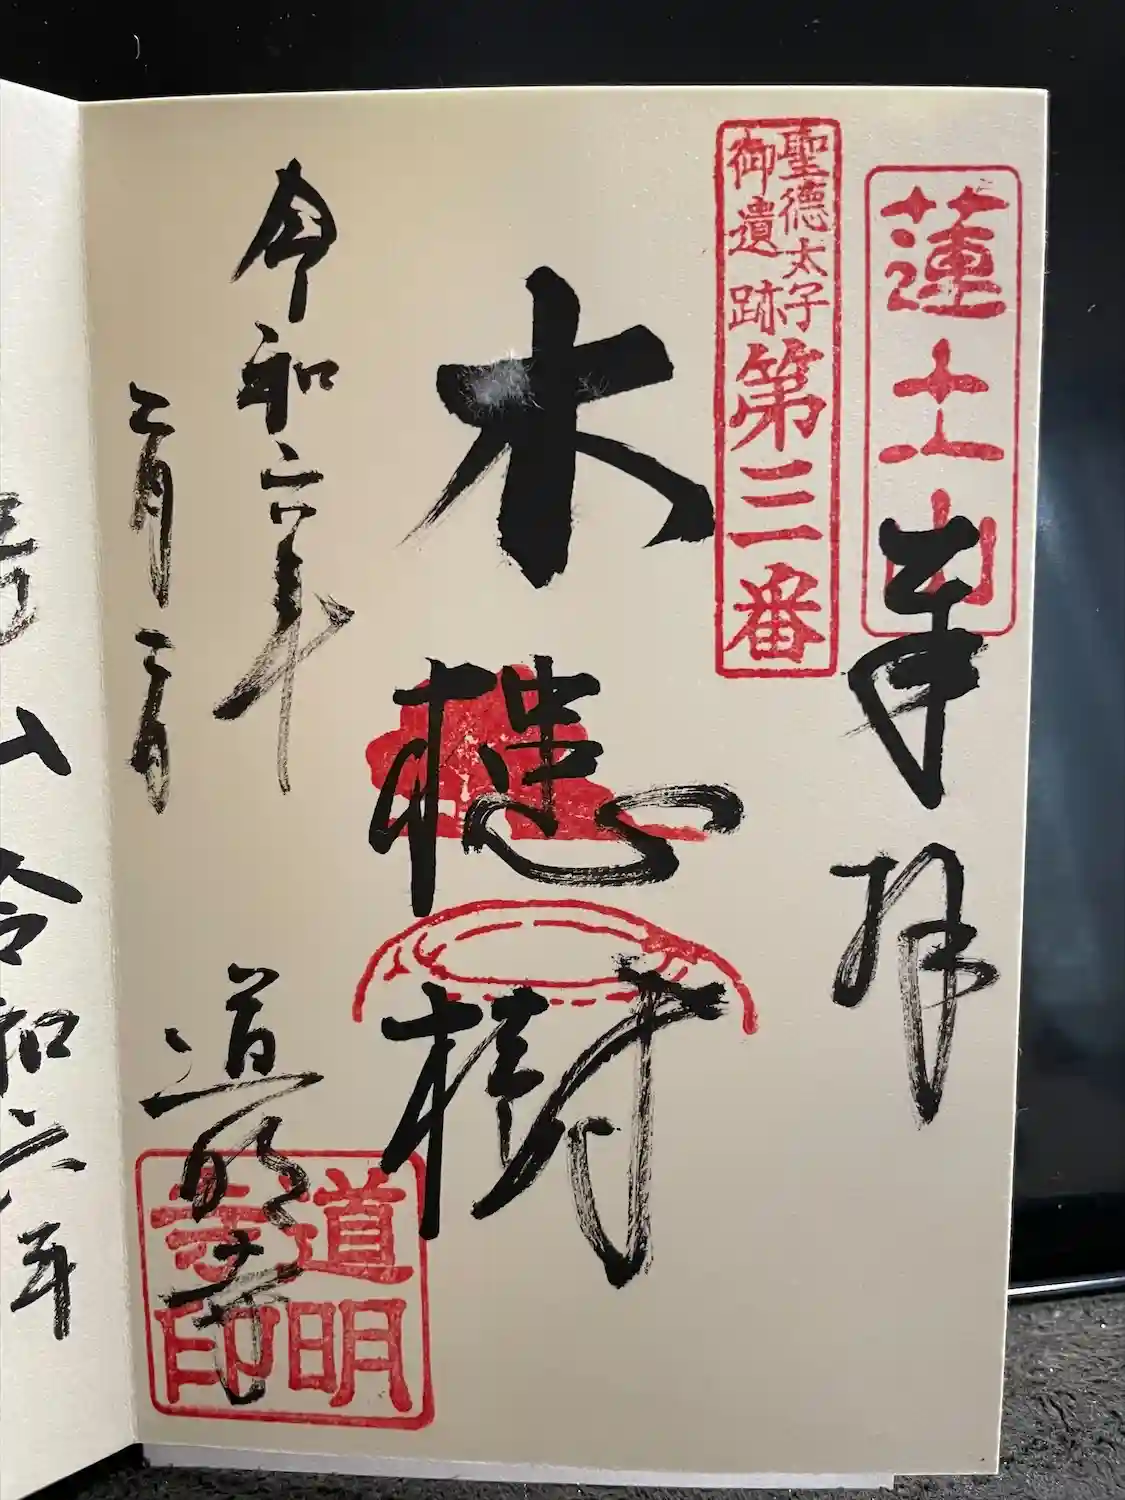 蓮土山
奉拝
聖徳太子
御遺跡
第三番
木槵樹
令和六年
二月
道明寺
道明
寺印
山
令和六年